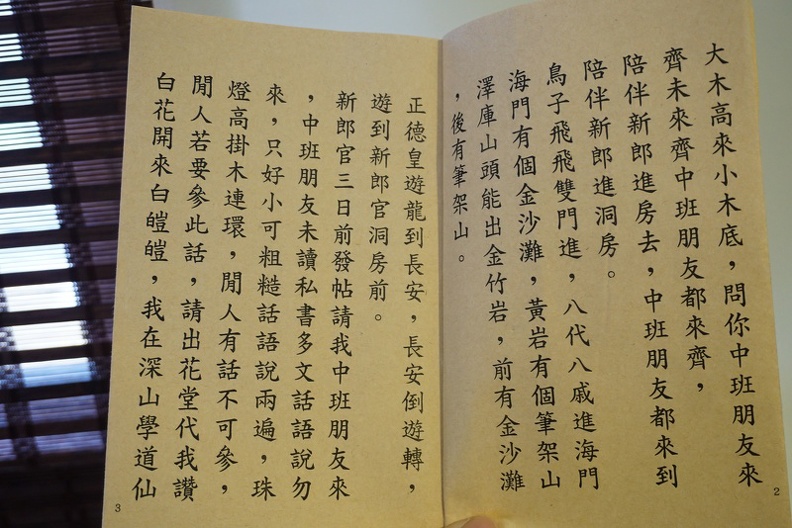 大木高來小木底，問你中班朋友來
齊未來齊中班朋友都來齊，
陪伴新郎進房去，中班朋友都來到
陪伴新郎進洞房。
鳥子飛飛雙門進，八代八戚進海門
海門有個金沙灘，黃岩有個筆架山
澤庫山頭能出金竹岩，前有金沙灘
，後有筆架山。
2
正德皇遊龍到長安，長安倒遊轉，
遊到新郎官洞房前。
新郎官三日前發帖請我中班朋友來
，中班朋友未讀私書多文話語說勿
來，只好小可粗糙話語說兩遍，珠
燈高掛木連環，閒人有話不可參，
閒人若要參此話，請出花堂代我讚
白花開來白皚皚，我在深山學道仙
3